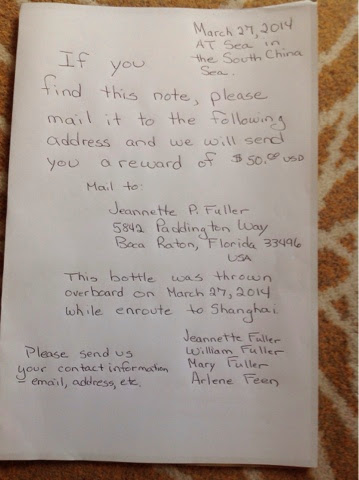 March 27, 2014
AT Sea in
the South China
Sea.
If you
find this note, please
mail it to the following
address and we will send
you a reward of $50.00 USD
Mail to:
Jeannette P. Fuller
5842 Paddington Way
Boca Raton, Florida 33496
USA
This bottle was thrown
overboard on March 27, 2014
while enroute to Shanghai.
Jeannette Fuller
William Fuller
Mary Fuller
Arlene Feen
Please send us
your contact information
- email, address, etc.